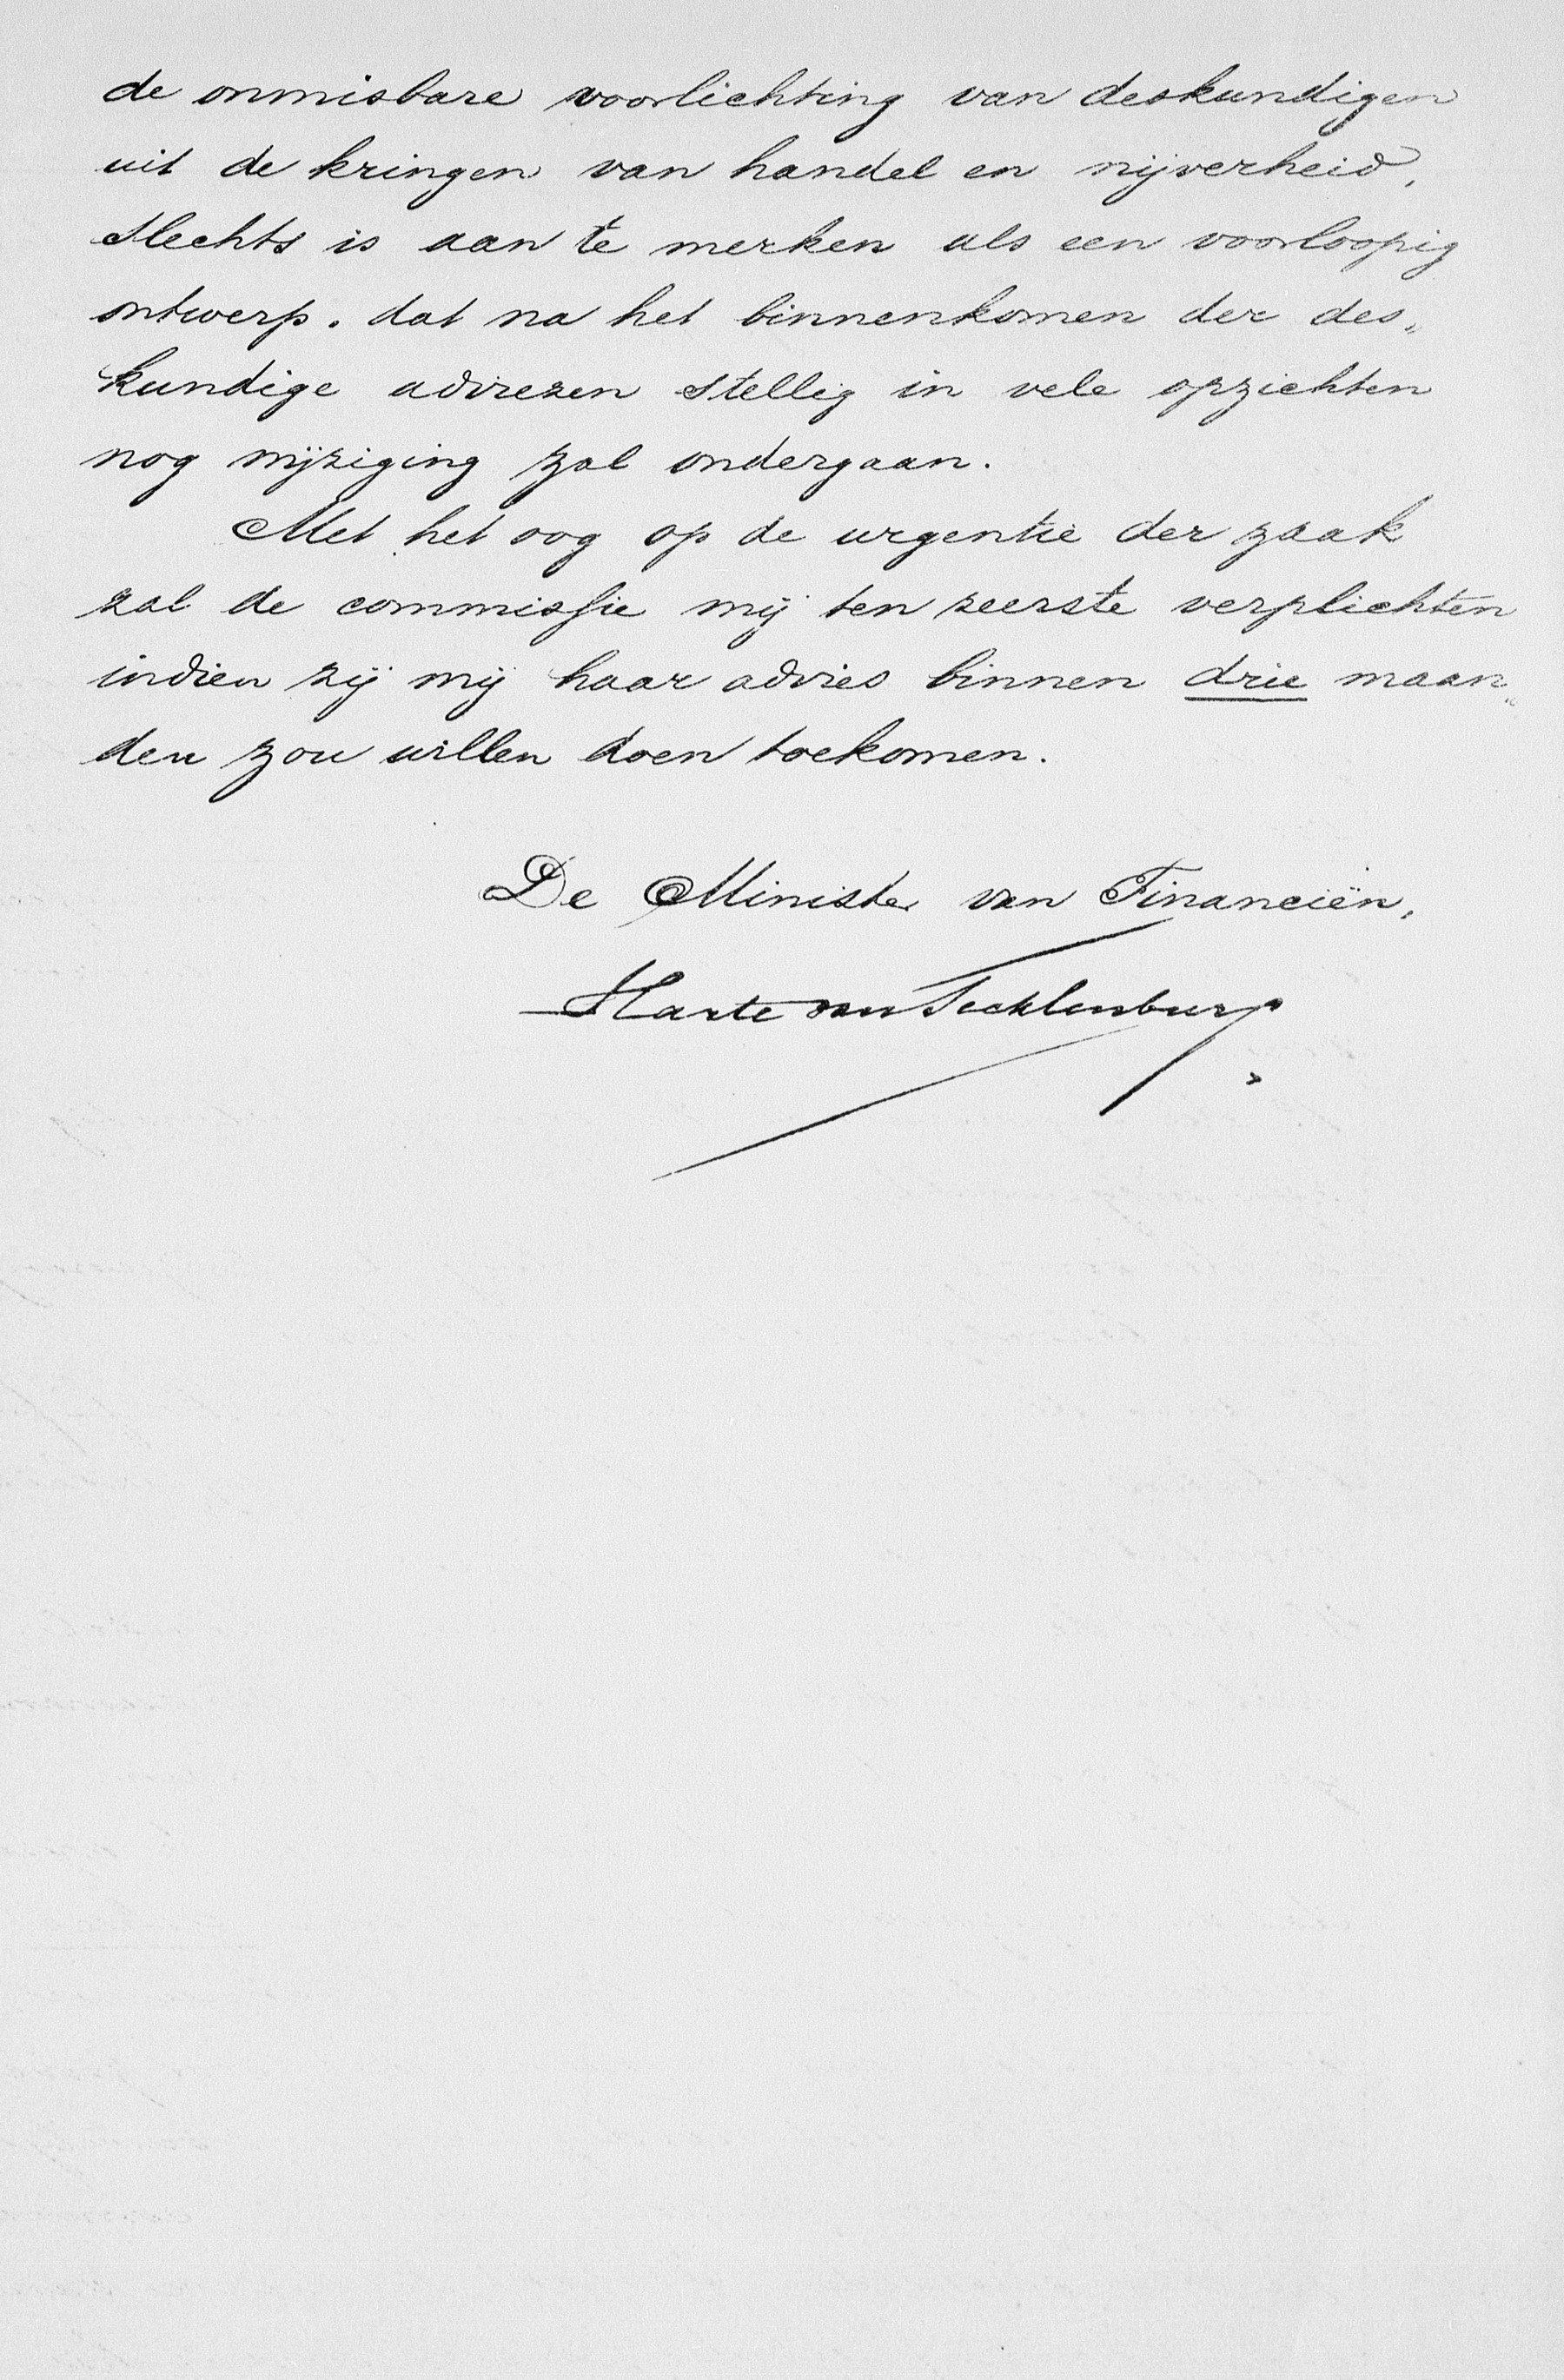 de onmisbare voorlichting van deskundigen
uit de kringen van handel en nijverheid,
slechts is aan te merken als een voorloopig
ontwerp. dat na het binnenkomen der des„
kundige adviezen stellig in vele opzichten
nog wijziging zal ondergaan.
Met het oog op de urgentie der zaak
zal de commissie mij ten zeerste verplichten
indien zij mij haar advies binnen drie maan„
den zou willen doen toekomen.
De Minister van Financiën,
Harte van Tecklenburg